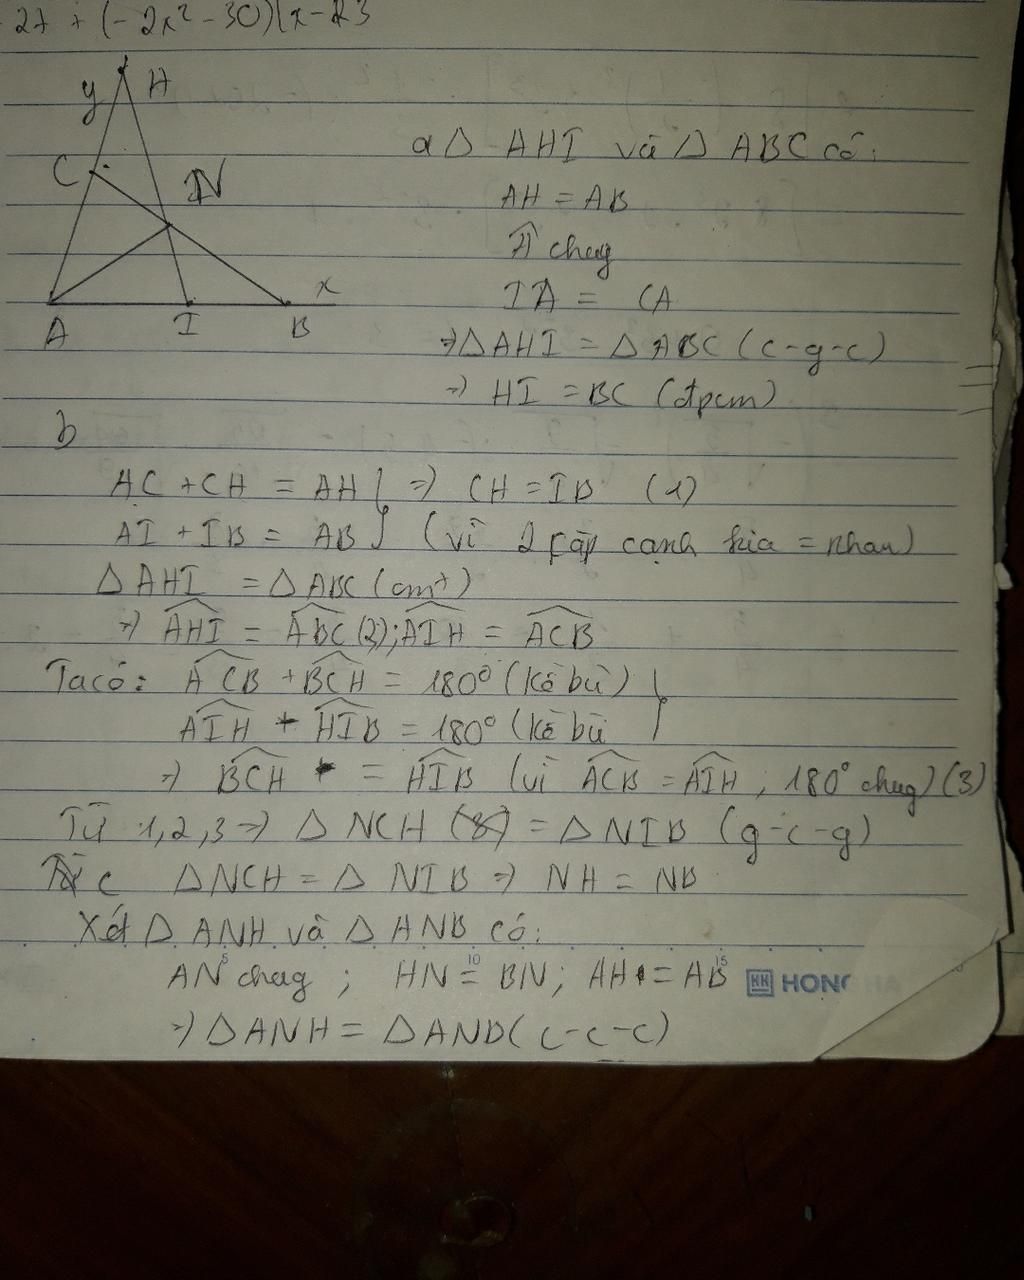 27 + (-2x² - 30)(x - 23
y H
C N
A I B x
a Δ AHI và Δ ABC có:
AH = AB
Â chug
IA = CA
=> Δ AHI = Δ ABC (c-g-c)
=> HI = BC (đpcm)
b
AC + CH = AH } => CH = IB (1)
AI + IB = AB } (vì 2 cặp cạnh kia = nhau)
Δ AHI = Δ ABC (cmt)
=> AHI = ABC (2); AIH = ACB
Ta có: ACB + BCH = 180° (kề bù) }
AIH + HIB = 180° (kề bù }
=> BCH = HIB (vì ACB = AIH, 180° chug) (3)
Từ 1,2,3 => Δ NCH = Δ NIB (g-c-g)
c Δ NCH = Δ NIB => NH = NB
Xét Δ ANH và Δ ANB có:
AN chug ; HN = BN; AH = AB
5 10 15
HK HONG HA
=> Δ ANH = Δ ANB (c-c-c)